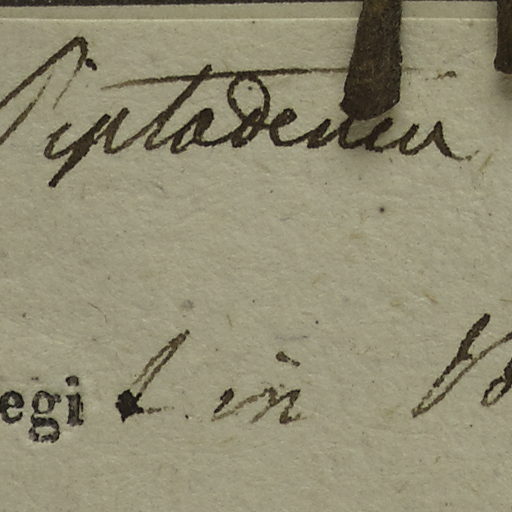 Piptadenia
egi in